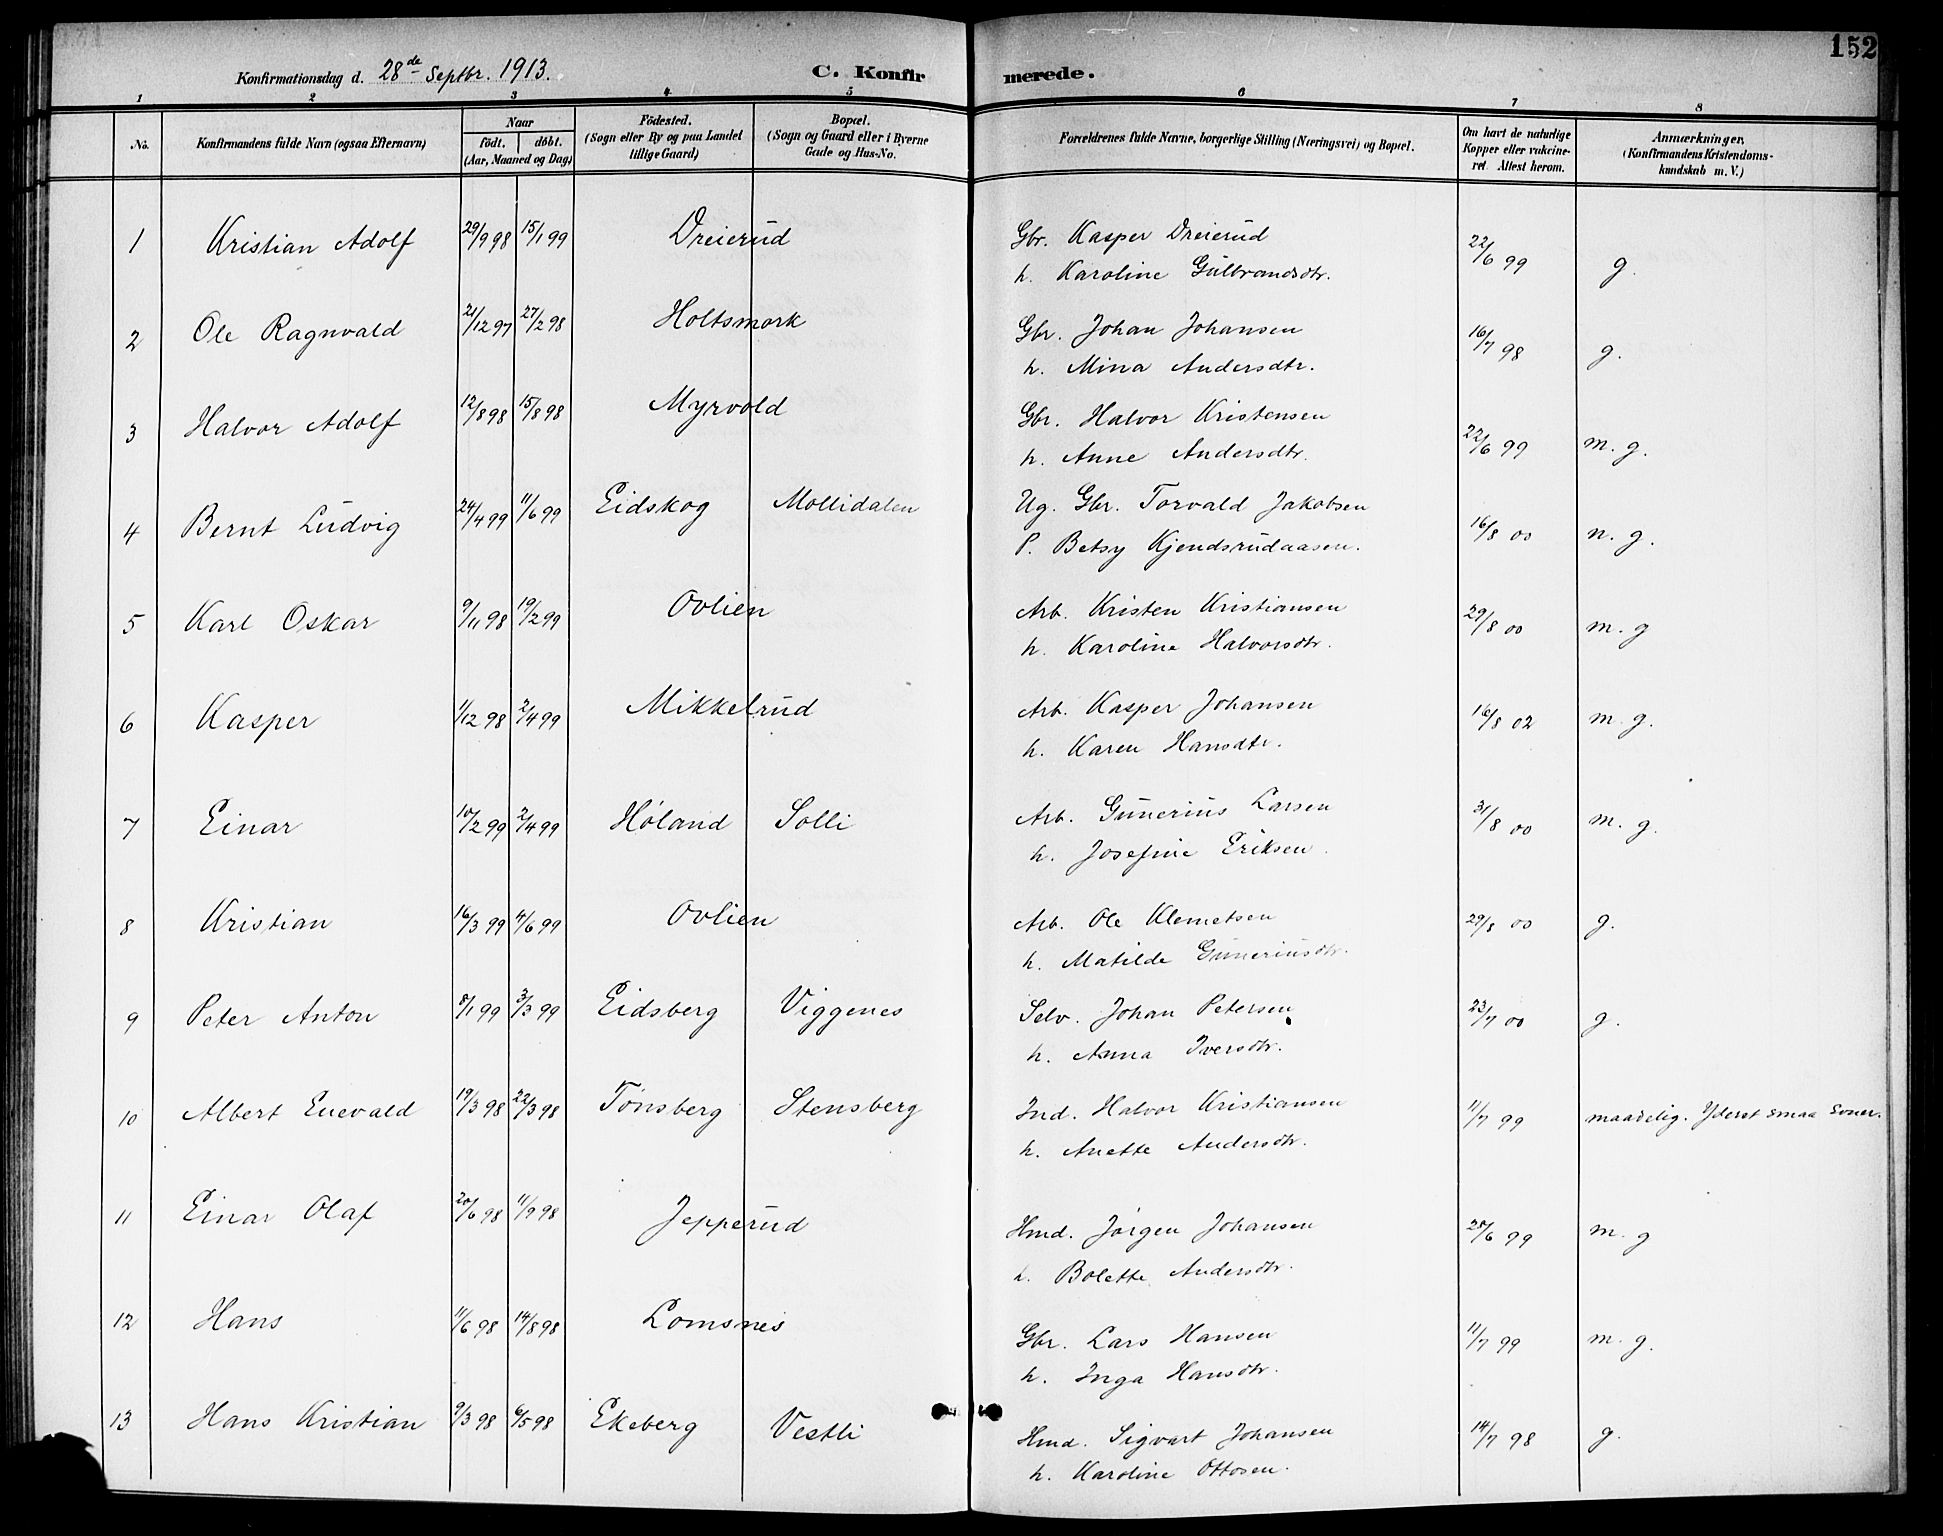 152
Konfirmationsdag d. 28de Septbr. 1913. C. Konfirmerede.
1 2 3 4 5 6 7 8
No. Konfirmandens fulde Navn (ogsaa Efternavn) Naar födt. döbt. (Aar, Maaned og Dag) Födested. (Sogn eller By og paa Landet tillige Gaard) Bopæl. (Sogn og Gaard eller i Byerne Gade og Hus-No. Forældrenes fulde Navne, borgerlige Stilling (Næringsvei) og Bopæl. Om havt de naturlige Kopper eller vakcineret. Attest herom. Anmærkninger. (Konfirmandens Kristendomskundskab m. V.)
1 Kristian Adolf 29/9 98 15/1 99 Dreierud Gbr. Kasper Dreierud 22/6 99 g.
h. Karoline Gulbrandsdtr.
2 Ole Ragnvald 21/12 97 27/2 98 Holtsmark Gbr. Johan Johansen 16/7 98 g.
h. Mina Andersdtr.
3 Halvor Adolf 12/8 98 15/8 98 Myrvold Gbr. Halvor Kristensen 22/6 99 m. g.
h. Anne Andersdtr.
4 Bernt Ludvig 24/4 99 11/6 99 Eidskog Mollidalen Ug. Gbr. Torvald Jakobsen 16/8 00 n. g.
P. Betsy Kjendsrudaasen.
5 Karl Oskar 9/11 98 19/2 99 Ovlien Arb. Kristen Kristiansen 29/8 00 m. g
h. Karoline Halvorsdtr.
6 Kasper 1/12 98 2/4 99 Mikkelrud Arb. Kasper Johansen 16/8 02 m. g.
h. Karen Hansdtr.
7 Einar 10/2 99 2/4 99 Høland Solli Arb. Gunerius Larsen 31/8 00 m. g.
h. Josefine Eriksen.
8 Kristian 16/3 99 4/6 99 Ovlien Arb. Ole Klemetsen 29/8 00 g.
h. Matilde Guneriusdtr.
9 Peter Anton 8/1 99 3/3 99 Eidsberg Viggenes Selv. Johan Petersen 23/7 00 g.
h. Anna Iversdtr.
10 Albert Enevald 19/3 98 22/3 98 Tønsberg Stensberg Ind. Halvor Kristiansen 11/7 99 maadelig. Yderst smaa Evner.
h. Anette Andersdtr.
11 Einar Olaf 20/6 98 11/9 98 Jepperud Hmd. Jørgen Johansen 28/6 99 m. g
h. Bolette Andersdtr.
12 Hans 11/6 98 14/8 98 Lomsnes Gbr. Lars Hansen 11/7 99 m. g.
h. Inga Hansdtr.
13 Hans Kristian 9/3 98 6/5 98 Ekeberg Vestli Hmd. Sigvart Johansen 14/7 98 g.
h. Karoline Ottosen.